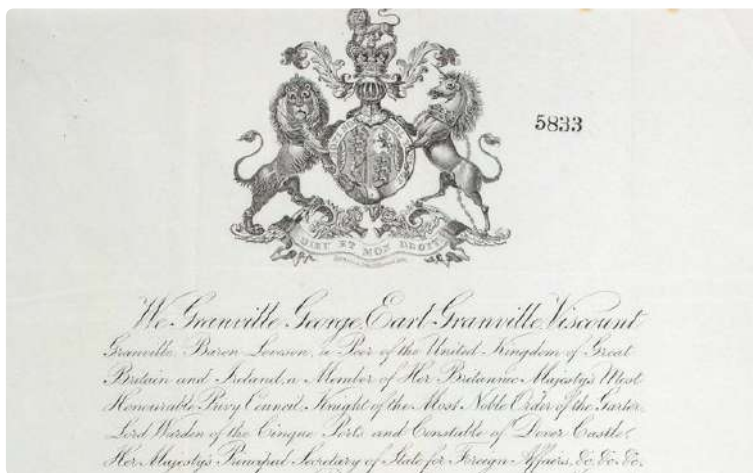 5833
DIEU ET MON DROIT
We Granville George, Earl Granville, Viscount
Granville, Baron Leveson, a Peer of the United Kingdom of Great
Britain and Ireland, a Member of Her Britannic Majesty's Most
Honourable Privy Council, Knight of the Most Noble Order of the Garter,
Lord Warden of the Cinque Ports and Constable of Dover Castle,
Her Majesty's Principal Secretary of State for Foreign Affairs, &c. &c. &c.